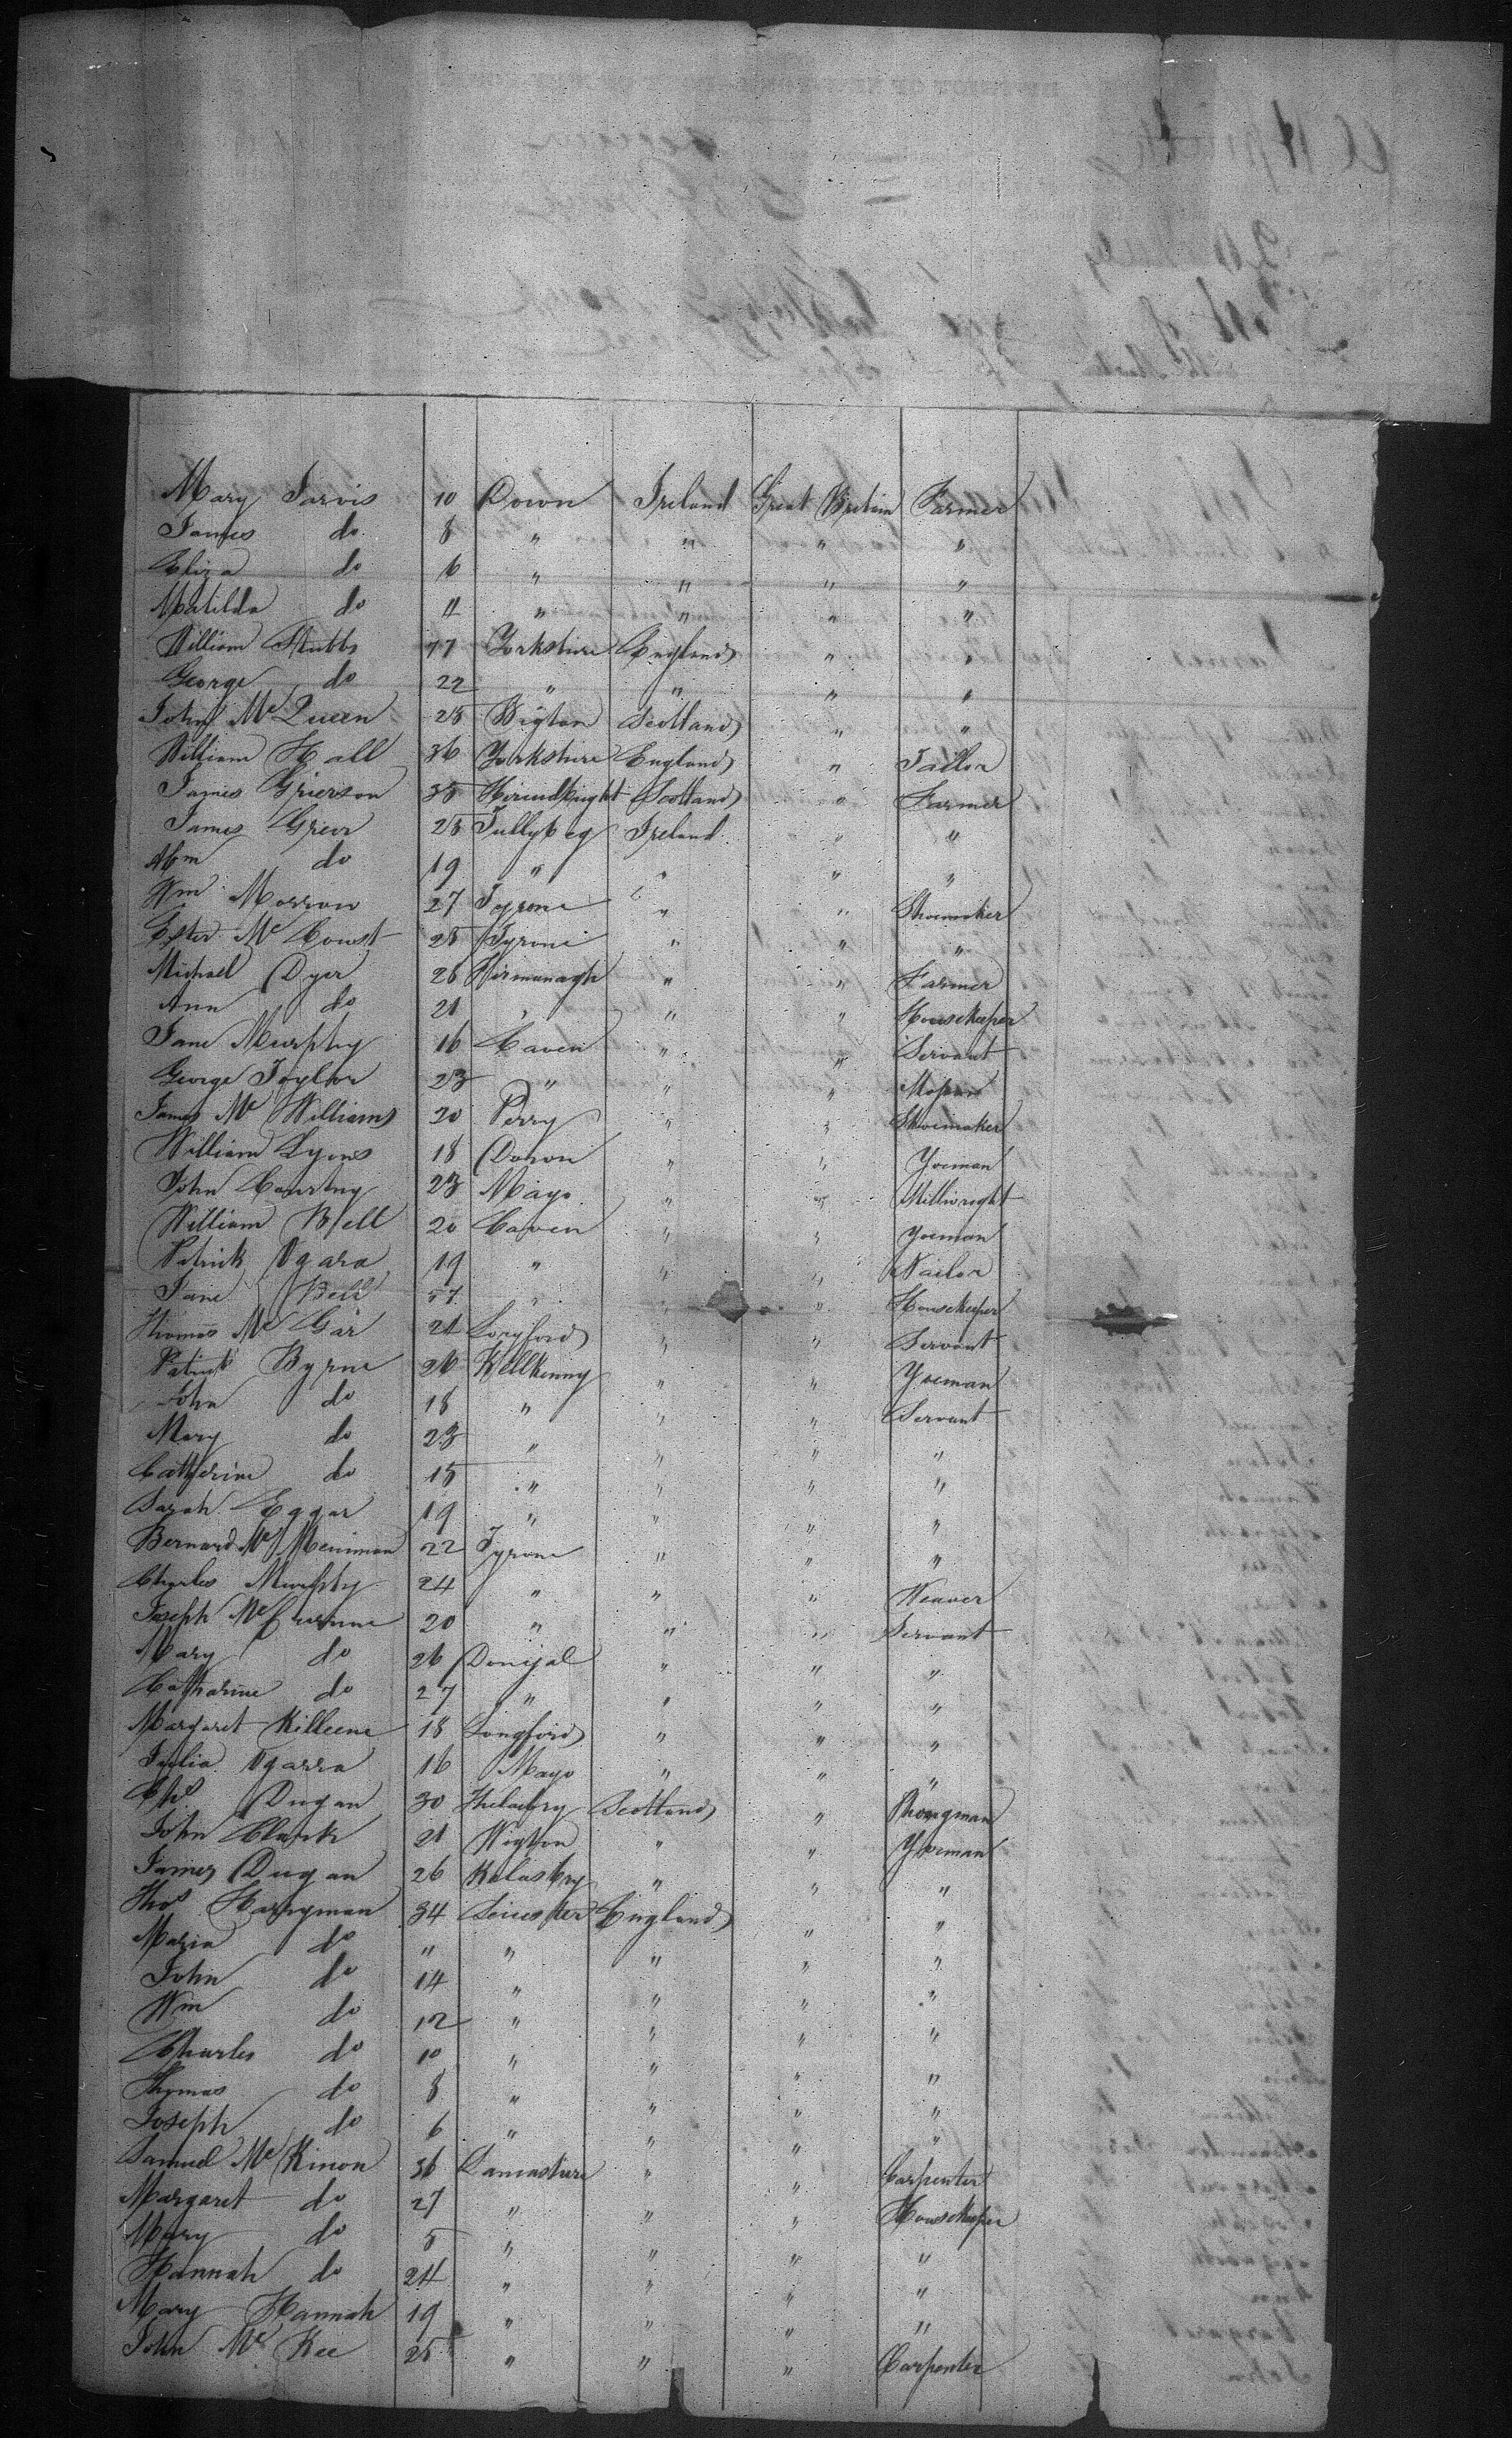 Mary Jarvis 10 Down Ireland Great Britain Farmer
James do 8 " " " "
Eliza do 6 " " " "
Matilda do 4 " " " "
William Stubbs 77 Yorkshire England " "
George do 22 " " " "
John McQueen 25 Wigton Scotland " "
William Hall 36 Yorkshire England " Tailor
James Grierson 35 Scotland " Farmer
James Greer 25 Tullybeg Ireland " "
Abm do 19 " " " "
Wm Morrow 27 Tyrone " " Shoemaker
Ester Mc 25 Tyrone " " "
Michael Dyer 26 Firmanagh " " Farmer
Ann do 21 " " " Housekeeper
Jane Murphy 16 Caven " " Servant
George Taylor 23 " " " Mason
James McWilliams 20 Derry " " Shoemaker
William Lyons 18 Down " " Yoeman
John Courtny 23 Mayo " " Millwright
William Bell 20 Caven " " Yoeman
Patrick Ogara 19 " " " Nailor
Jane Bell 57 " " " Housekeeper
Thomas Mc Gar 21 Longford " " Servant
Patrick Byrne 26 Killkenny " " Yoeman
John do 18 " " " Servant
Mary do 23 " " " "
Catherine do 15 " " " "
Sarah Eggar 19 " " " "
Bernard Mc Meniman 22 Tyrone " " "
Charles Murphy 24 " " " Weaver
Joseph Mc 20 " " " Servant
Mary do 26 Donegal " " "
Catharine do 27 " " " "
Margaret Killeene 18 Longford " " "
Julia Ogarra 16 Mayo " " "
Dugan 30 Scotland "
John Clark 21 Wigton " " Yoeman
James Dugan 26 " " "
Thos Harryman 34 Leicester England " "
Maria do " " " " "
John do 14 " " " "
Wm do 12 " " " "
Charles do 10 " " " "
Thomas do 8 " " " "
Joseph do 6 " " " "
Samuel McKinon 36 Lancashire " " Carpenter
Margaret do 27 " " " Housekeeper
Mary do 5 " " " "
Hannah do 24 " " " "
Mary Hannah 19 " " " "
John McKee 25 " " " Carpenter